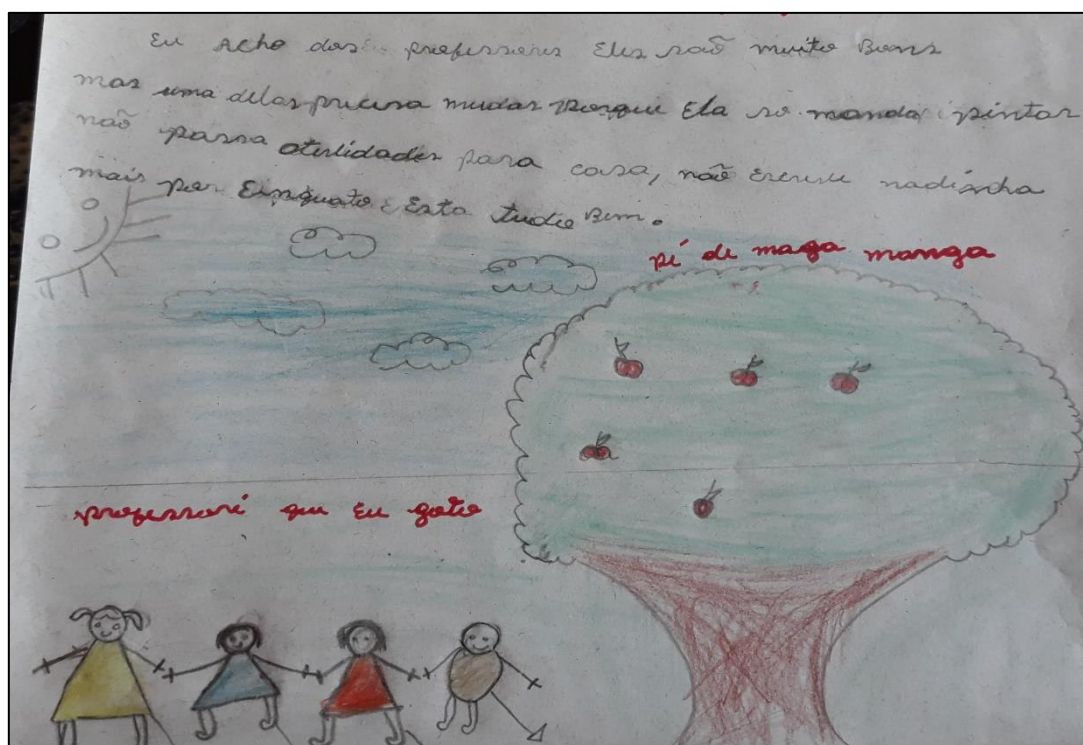 Eu Acho dos professores Eles são muito Bons
mas uma delas precisa mudar porque Ela so manda pintar
não passa atelidades para casa, não Escreve nadinha
mais por Einquato Esta tudo Bem.
pé de maga manga
professori que Eu goto